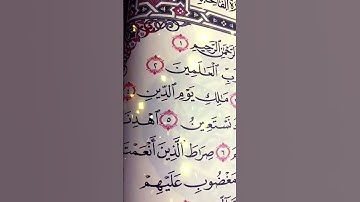 الرَّحْمَٰنِ الرَّحِيمِ ١
رَبِّ الْعَالَمِينَ ٢
مَلِكِ يَوْمِ الدِّينِ
نَسْتَعِينُ ٥ اهْدِنَا
٦ صِرَاطَ الَّذِينَ أَنْعَمْتَ
الْمَغْضُوبِ عَلَيْهِمْ